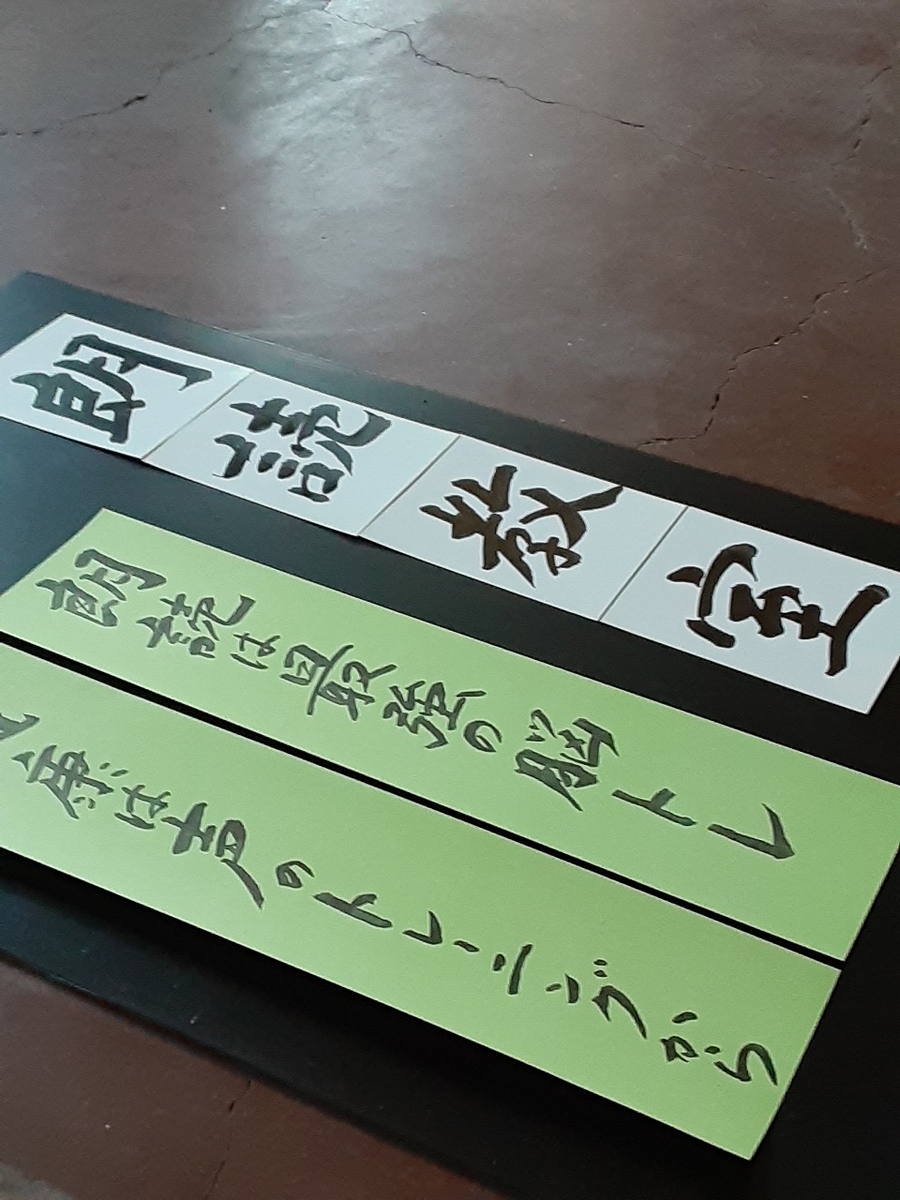 朗読教室
朗読は最強の脳トレ
康は声のトレーニングから